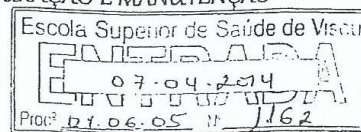 Escola Superior de Saúde de Viseu
ENTRADA
07-04-2014
Proc.º 01.06.05 N.º 1162